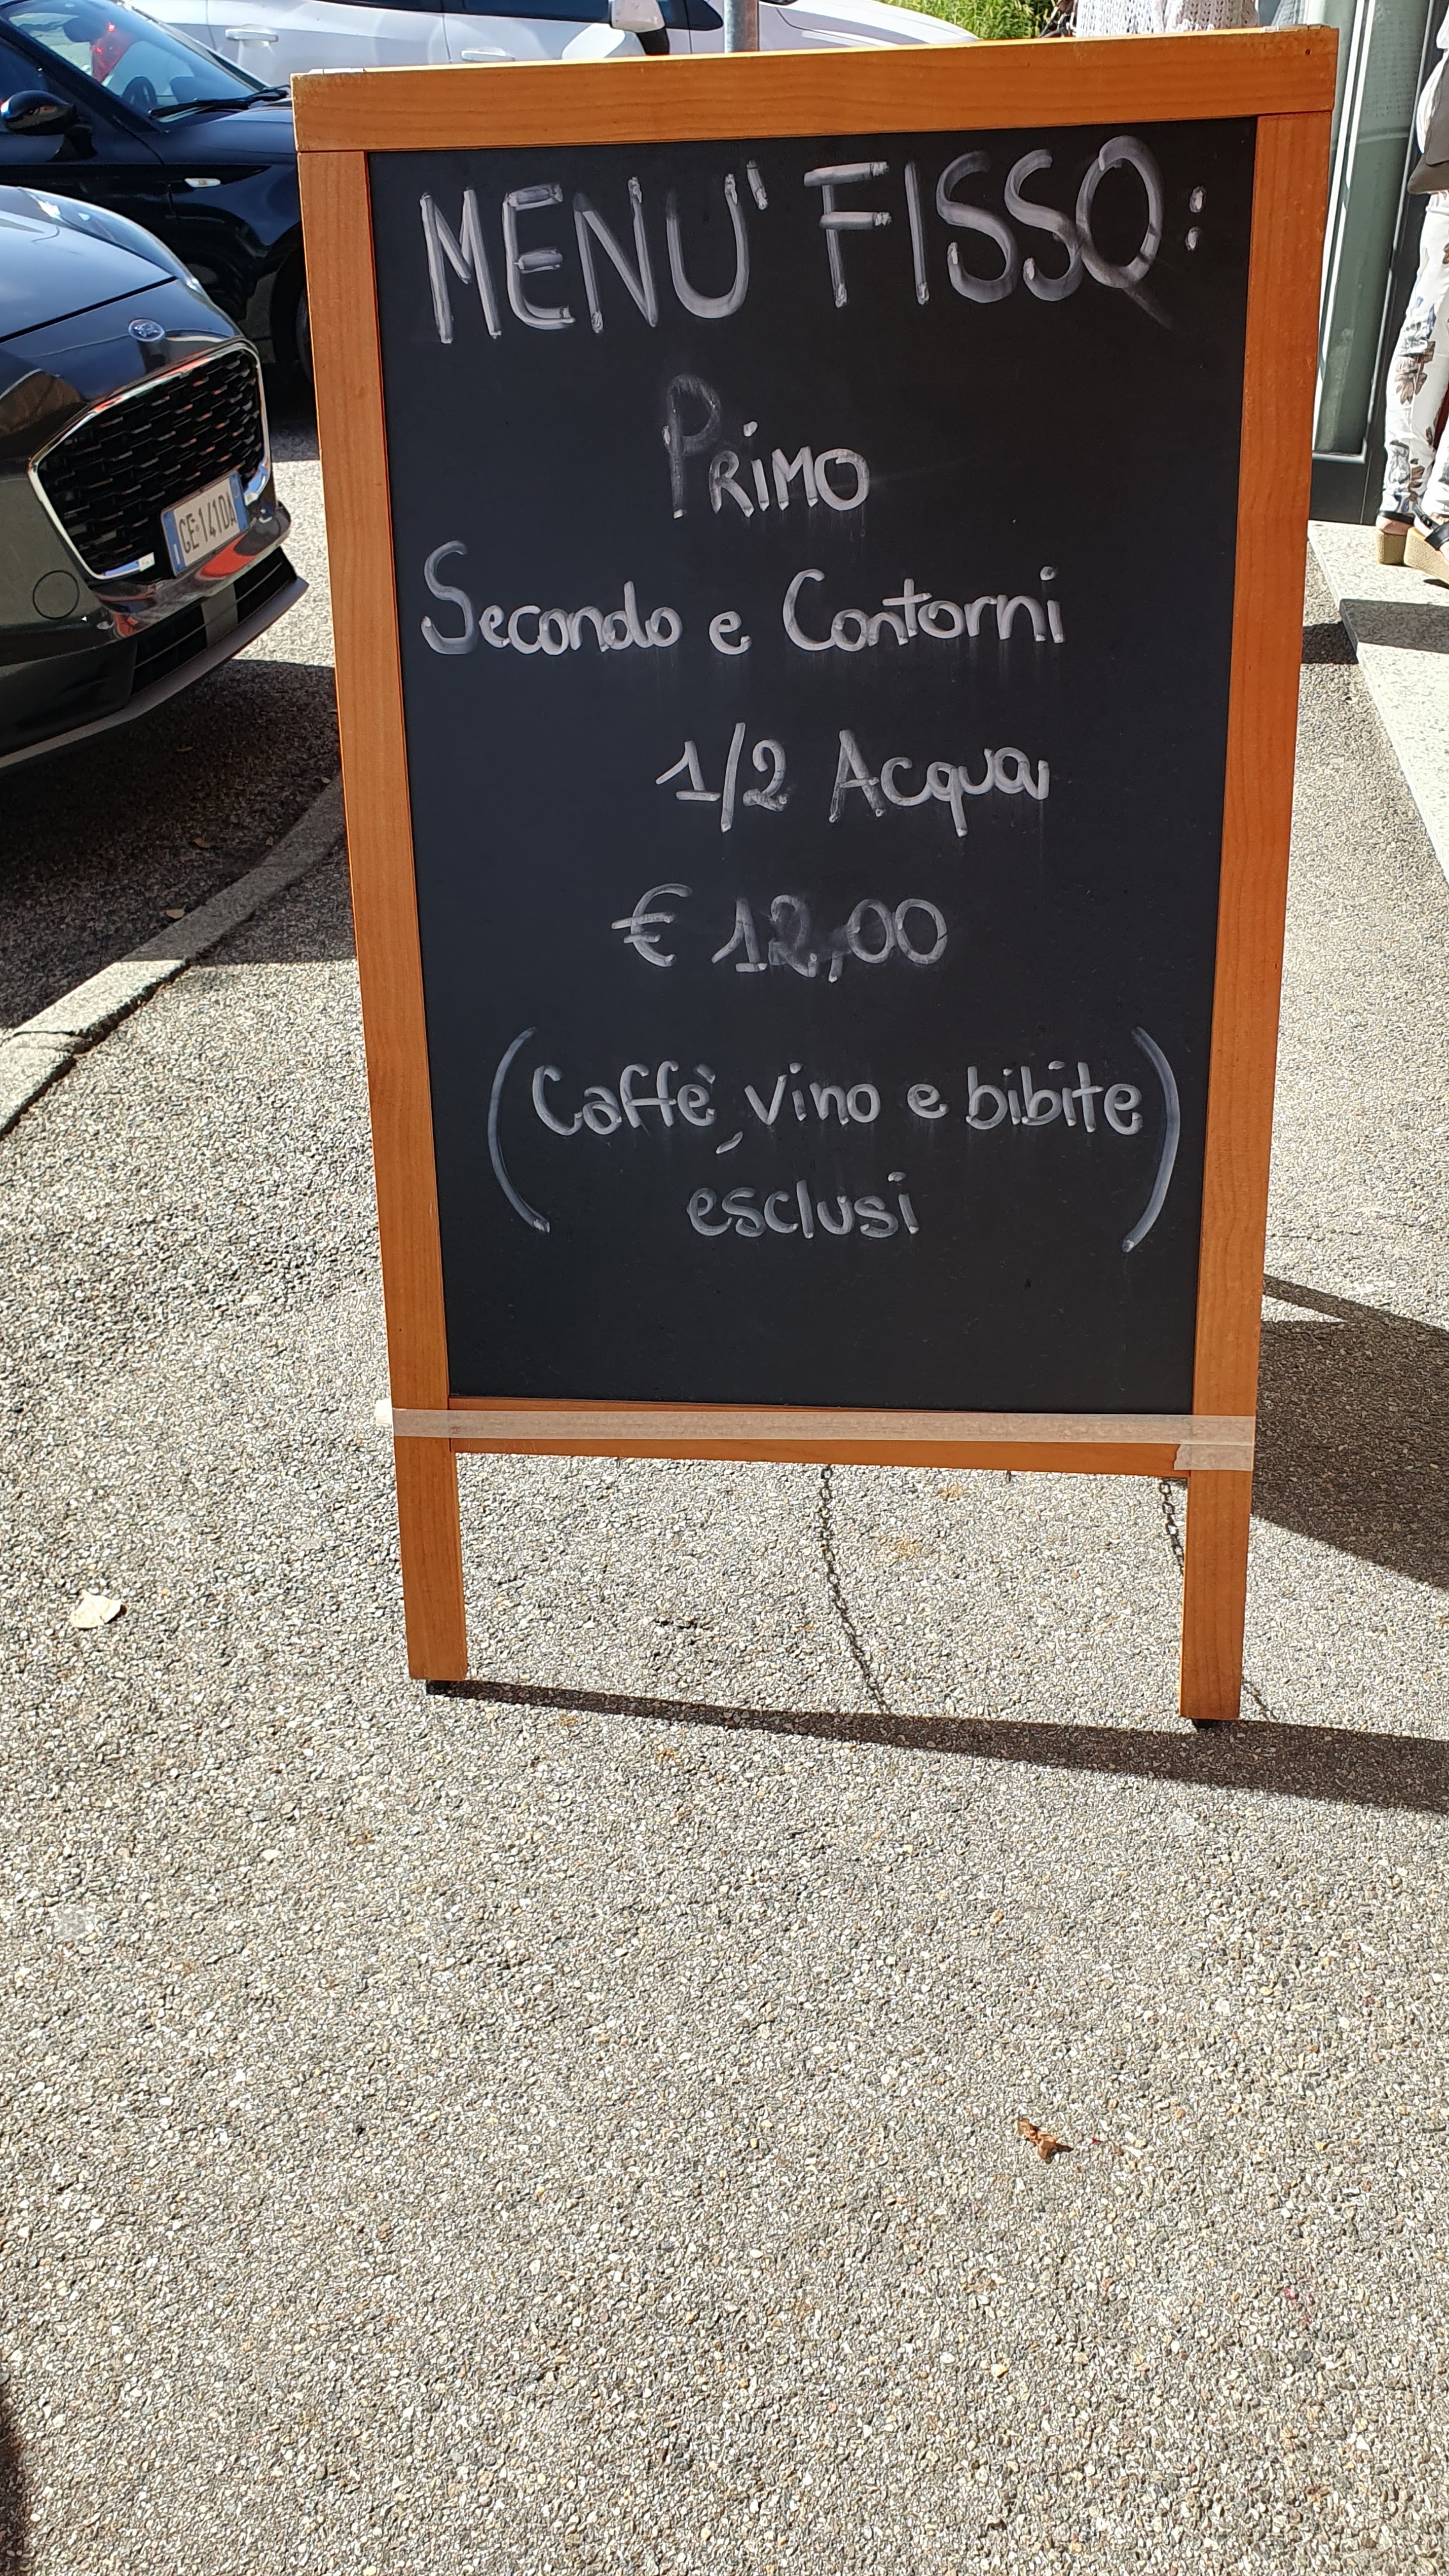 MENU' FISSO:
PRiMO
Secondo e Contorni
1/2 Acqua
€ 12,00
(Caffè, vino e bibite)
esclusi
GE·141DA